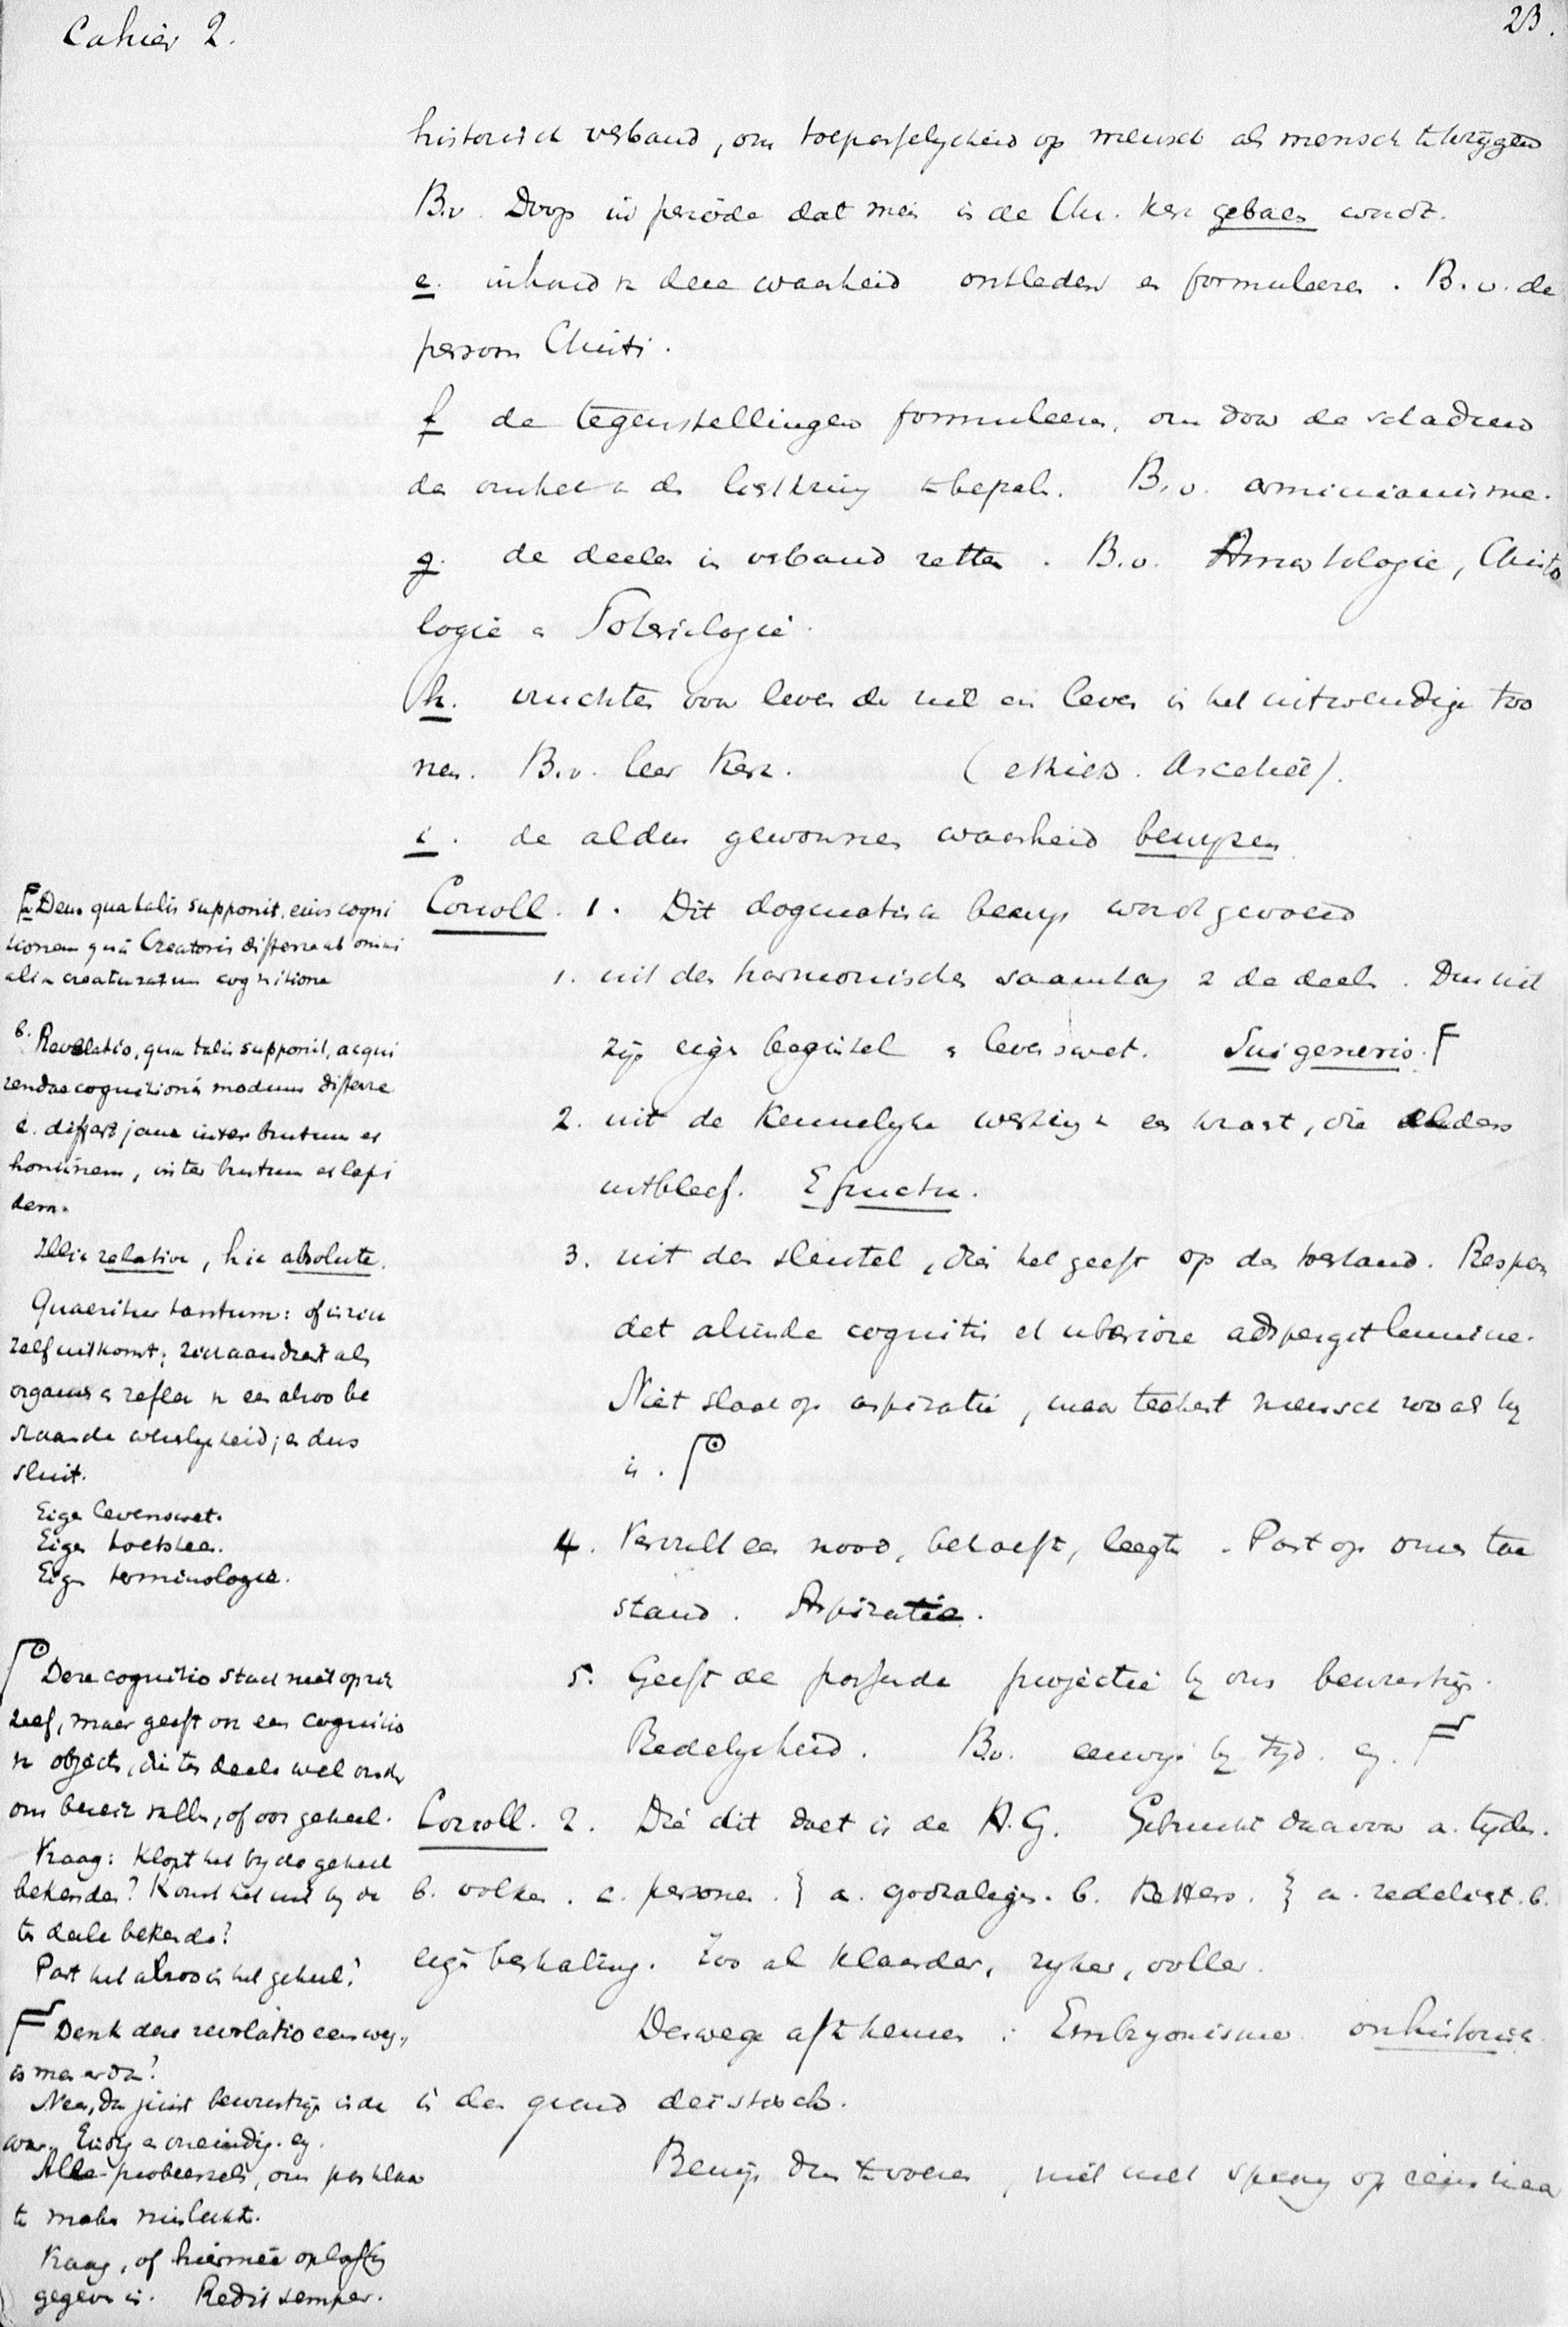 Cahier 2.
23.
historisch verband, om toepasselijkheid op mensch als mensch te krijgen
B.v. Doop in periode dat men in de Chr. Kerk geboren wordt.
e. inhoud v. deze waarheid ontleden en formuleeren. B.v. de
persoon Christi.
f de tegenstellingen formuleeren, om door de schaduw
den omtrek v. de lichtkring te bepalen. B.v. arminianisme.
g. de deelen in verband zetten. B.v. Amartologie, Christo
logie en Soteriologie.
h. vruchten voor leven der ziel en leven in het uitwendige too
nen. B.v. leer Kerk. (ethiek. Ascetiek).
i. de aldus gewonnen waarheid bewijzen.
Coroll. 1. Dit dogmatisch bewijs wordt gevoerd
1. uit den harmonischen saamhang v. de deelen. Dus uit
zijn eigen beginsel en levenswet. Sui generis.
2. uit de kennelijke werking v. een kracht, die elders
uitbleef. E fructu.
3. uit den sleutel, dien het geeft op den toestand. Respon
det aliunde cognitis et uberiore adsperget lumine.
Niet slaat op aspiratie, maar teekent mensch zooals hij
is.
4. Vervult een nood, behoefte, leegte. Past op onzen toe
stand. Aspiratie.
5. Geeft de passende projectie bij ons bewustzijn.
Redelijkheid. B.v. eeuwig bij tijd. ej.
Coroll. 2. Die dit doet is de H.G. Gebruikt daarvoor a. tijden.
b. volken. c. personen. } a. godzaligen. b. Ketters. } a. redelicht. b.
eigen bestraling. Zoo al klaarder, rijker, voller.
Deswege af te keuren: Embryonisme. onhistorisch.
in den grond deistisch.
Bewijs dus te voeren, niet met sprong op eens naar
Deus qua talis supponit, eius cogni
tionem quâ Creatoris differre ab omni
alia creaturarum cognitione
b. Revelatio, qua talis supponit, acqui
rendae cognitionis modum differre
c. differt jam inter brutum et
hominem, inter brutum et lapi
dem.
Illic relative, hic absolute.
Quaeritur tantum: of in zich
zelf uitkomt; zich aandient als
organisch reflex v. een alzoo be
staande werkelijkheid; en dus
sluit.
Eigen levenswet.
Eigen toetssteen.
Eigen terminologie.
Deze cognitio staat niet op zich
zelf, maar geeft ook een cognitio
v. objecten, die ten deele wel onder
ons bereik vallen, of ook geheel.
Vraag: Klopt het bij de geheel
bekende? Komt het uit bij de
ten deele bekende?
Past het alzoo in het geheel?
Denk deze revelatio een weg,
is men er dan?
Neen, dan juist bewustzijn in de
war. Eindig en oneindig. ej.
Alle probeersels, om pasklaar
te maken mislukt.
Vraag, of hiermeê oplossing
gegeven is. Redit semper.